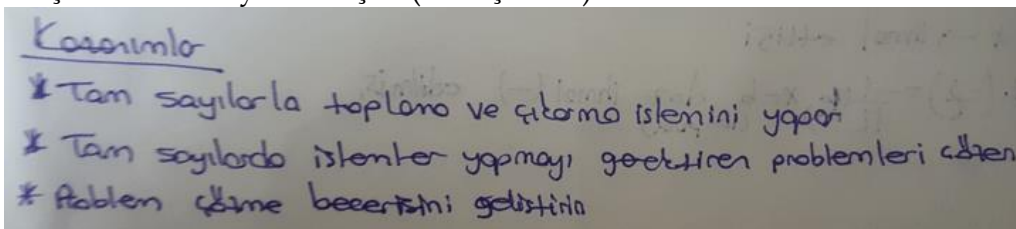 Kazanımlar
* Tam sayılarla toplama ve çıkarma işlemini yapar
* Tam sayılarda işlemler yapmayı gerektiren problemleri çözer
* Problem çözme becerisini geliştirir